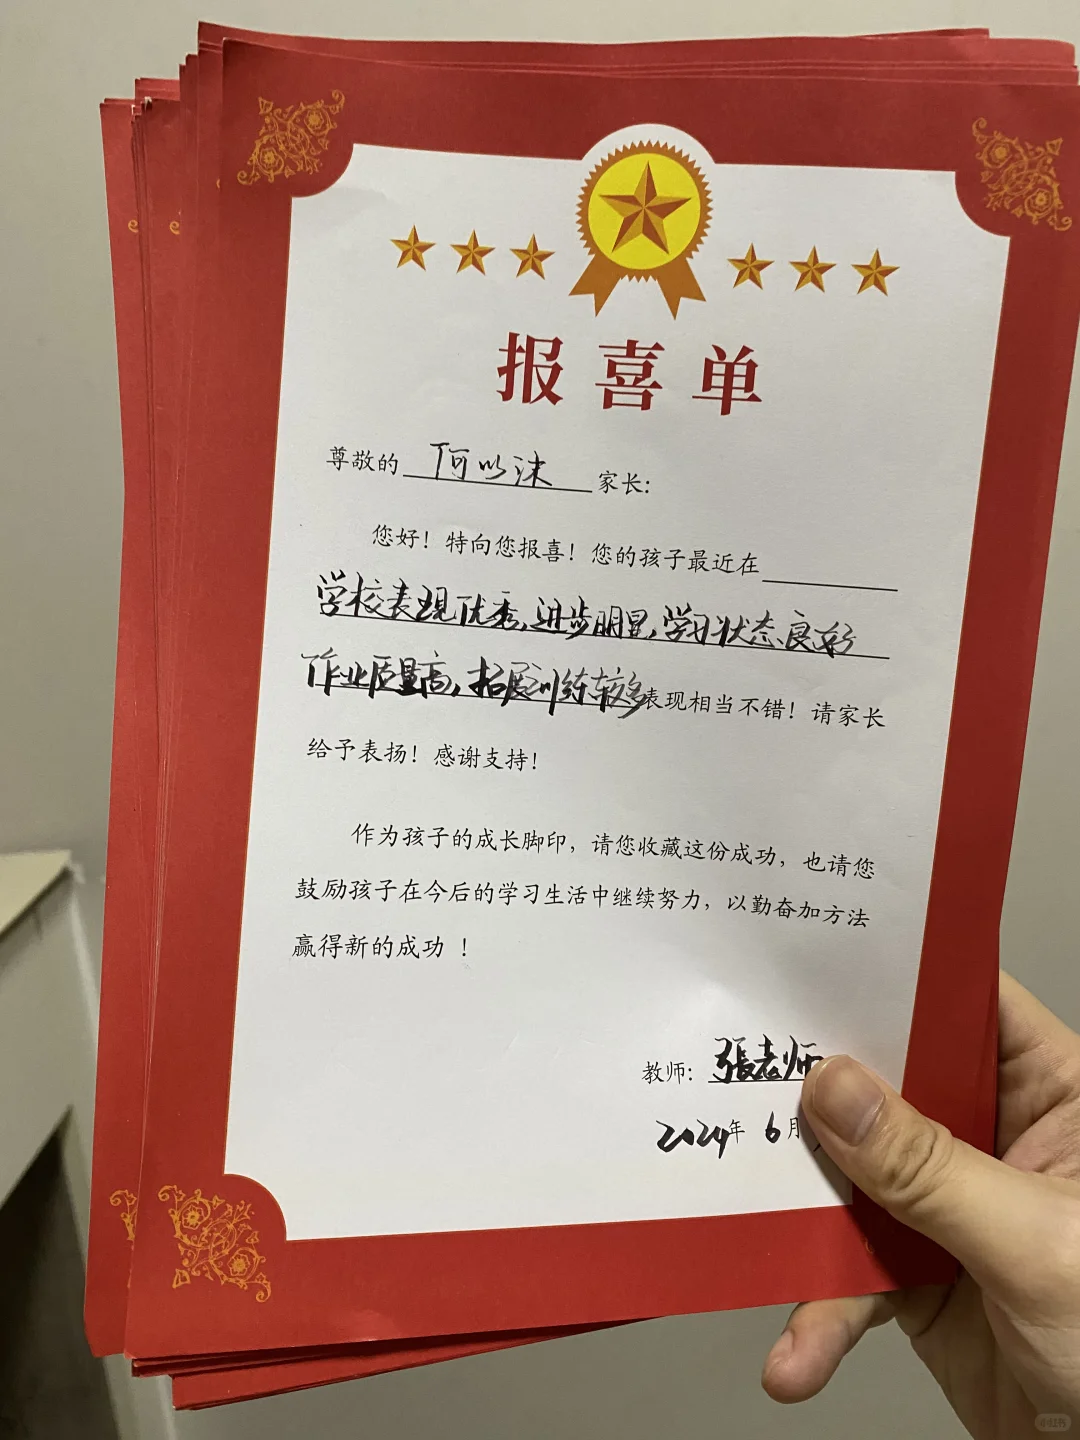 报喜单
尊敬的 何以沫 家长:
您好！特向您报喜！您的孩子最近在
学校表现优秀,进步明显,学习状态良好
作业质量高,拓展训练较多表现相当不错！请家长
给予表扬！感谢支持！
作为孩子的成长脚印，请您收藏这份成功，也请您
鼓励孩子在今后的学习生活中继续努力，以勤奋加方法
赢得新的成功 ！
教师: 張老师
2024年 6月
小红书